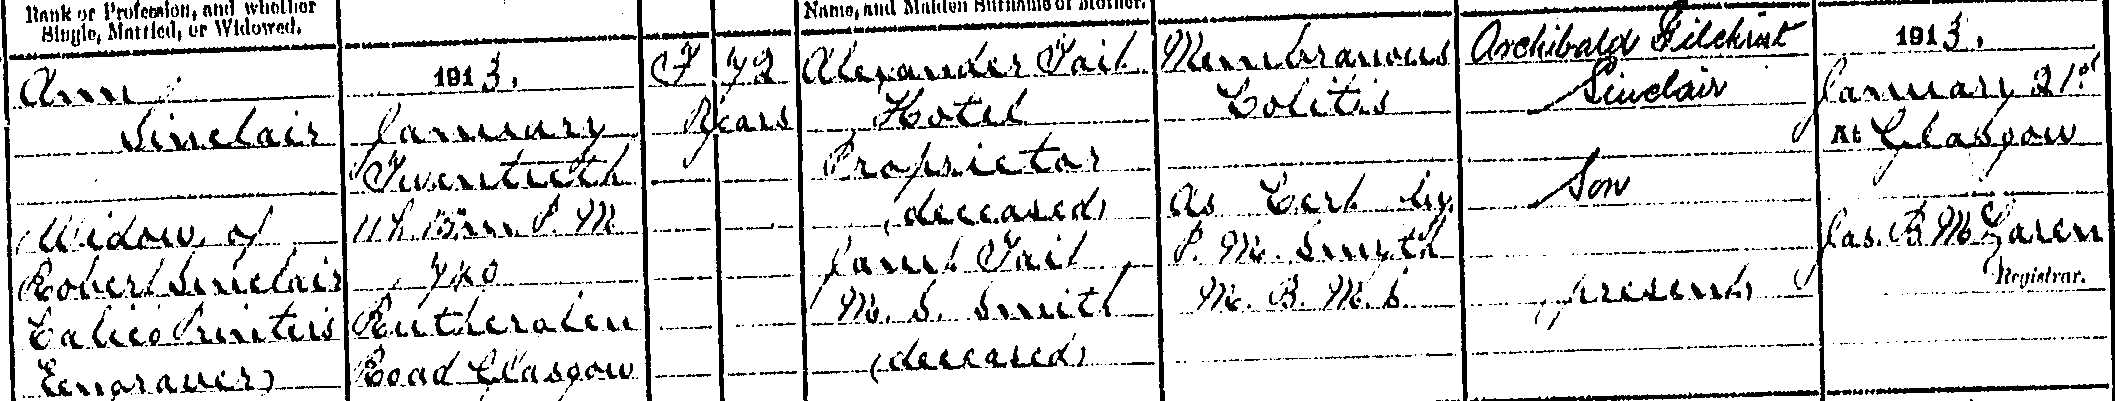 Rank or Profession, and whether
Single, Married, or Widowed.
Ann
Sinclair
(Widow of
Robert Sinclair
Calico Printers
Engraver)
1913.
January
Twentieth
11h. 15m. P.M.
740
Rutherglen
Road Glasgow
F
72
Years
Name, and Maiden Surname of Mother.
Alexander Tait
Hotel
Proprietor
(deceased)
Tait
M. S. Smith
(deceased)
Membranous
Colitis
As Cert by
P. M. Smyth
M. B. M. S.
Archibald Gilchrist
Sinclair
Son
(present)
1913.
January 21st
At Glasgow
Jas. B. McLaren
Registrar.